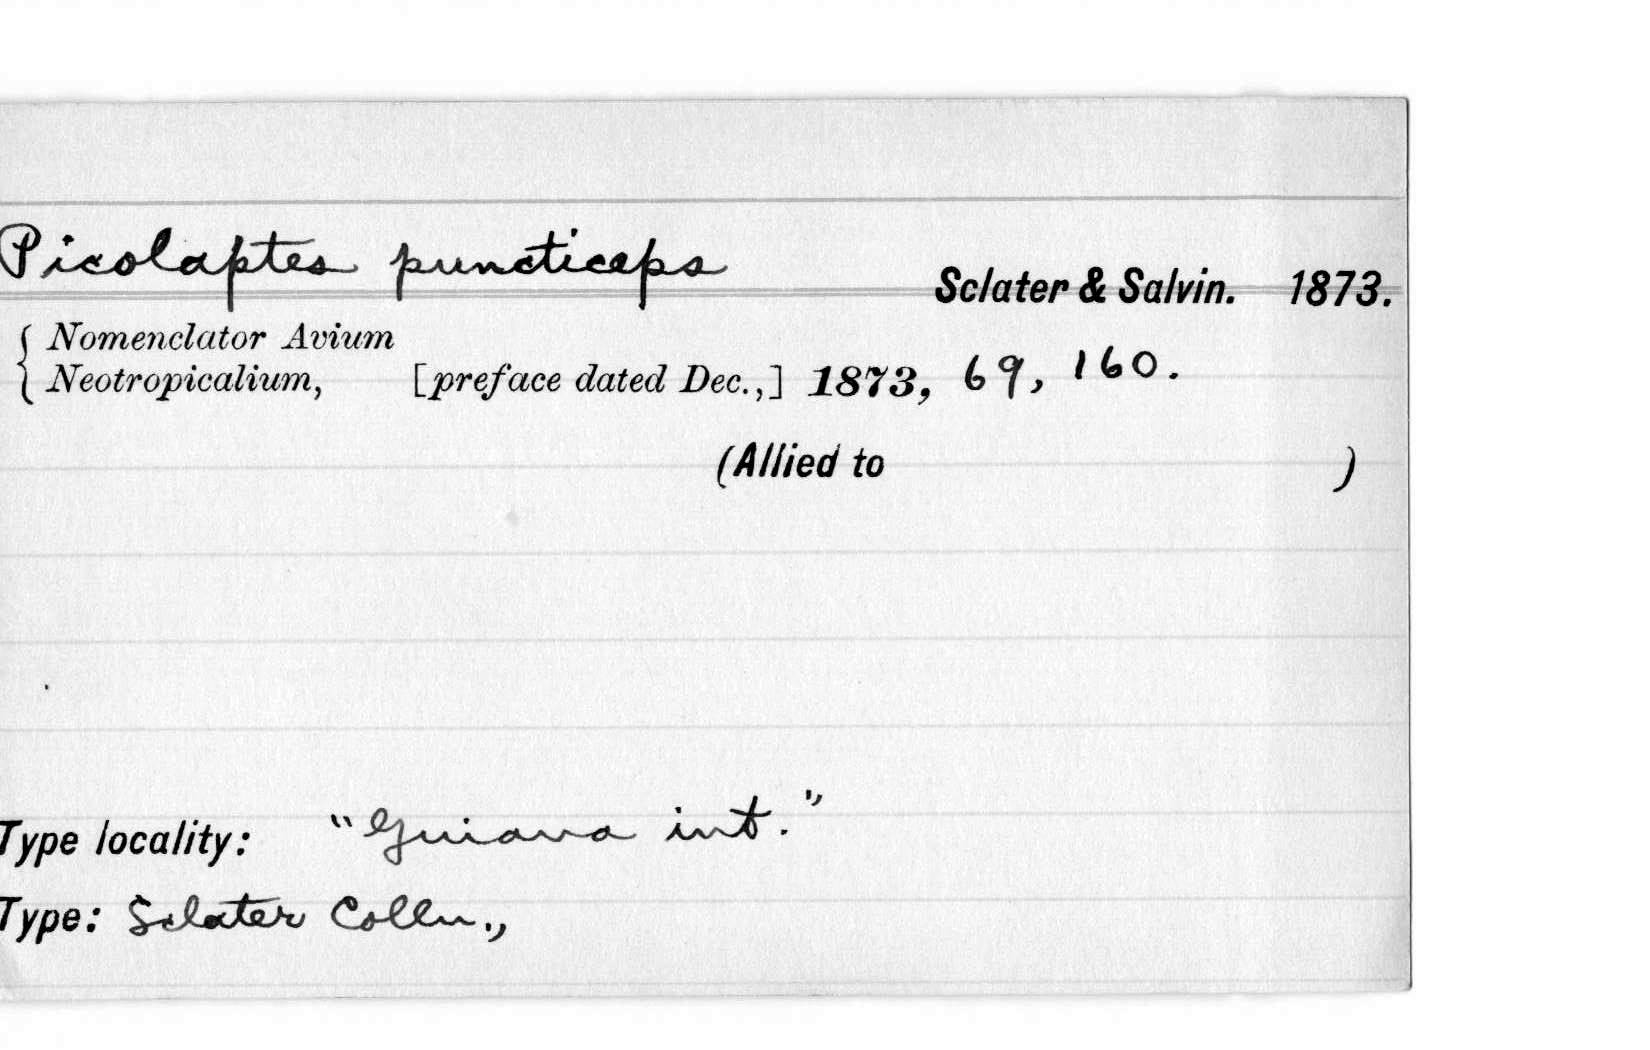 Picolaptes puncticeps Sclater & Salvin. 1873.
{ Nomenclator Avium
Neotropicalium, [preface dated Dec.,] 1873, 69, 160.
(Allied to )
Type locality: "Guiana int."
Type: Sclater Colln.,